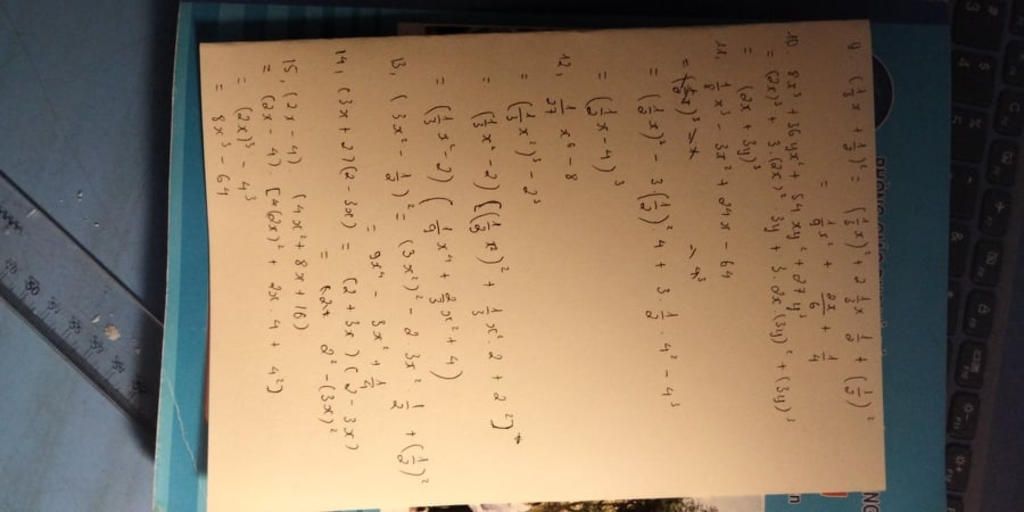 9. (1/3 x + 1/2)² = (1/3 x)² + 2 1/3 x 1/2 + (1/2)²
= 1/9 x² + 2x/6 + 1/4
10. 8x³ + 36yx² + 54xy² + 27y³
= (2x)³ + 3(2x)² 3y + 3 2x(3y)² + (3y)³
= (2x + 3y)³
11, 1/8 x³ - 3x² + 24x - 64
= (1/2 x)³ - 3(1/2)² 4 + 3 . 1/2 . 4² - 4³
= (1/2 x - 4)³
12, 1/27 x⁶ - 8
= (1/3 x²)³ - 2³
= (1/3 x² - 2) [(1/3 x²)² + 1/3 x² . 2 + 2²]
= (1/3 x² - 2) (1/9 x⁴ + 2/3 x² + 4)
13, (3x² - 1/2)² = (3x²)² - 2 3x² 1/2 + (1/2)²
= 9x⁴ - 3x² + 1/4
14, (3x + 2)(2 - 3x) = (2 + 3x)(2 - 3x)
= 2² - (3x)²
15, (2x - 4) (4x² + 8x + 16)
= (2x - 4). [(2x)² + 2x . 4 + 4²]
= (2x)³ - 4³
= 8x³ - 64